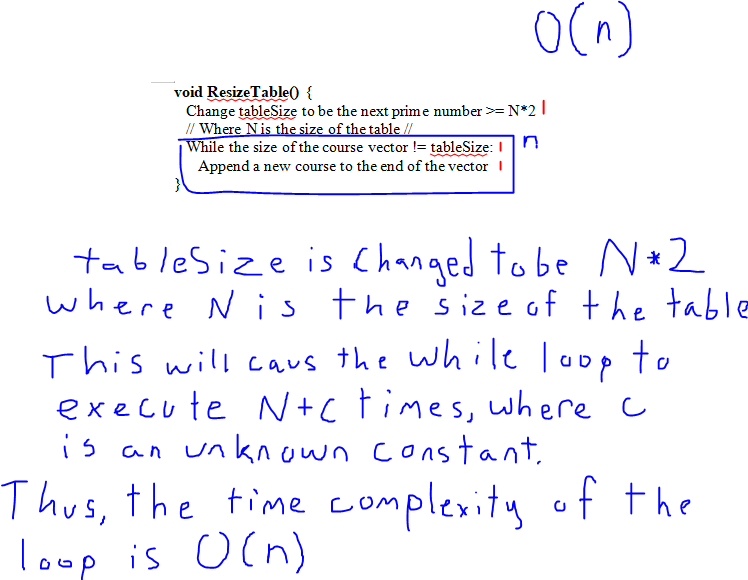 O(n)
void ResizeTable() {
Change tableSize to be the next prime number >= N*2 1
// Where N is the size of the table //
While the size of the course vector != tableSize: 1 n
Append a new course to the end of the vector 1
}
tableSize is changed to be N*2
where N is the size of the table
This will caus the while loop to
execute N+C times, where C
is an unknown constant.
Thus, the time complexity of the
loop is O(n)